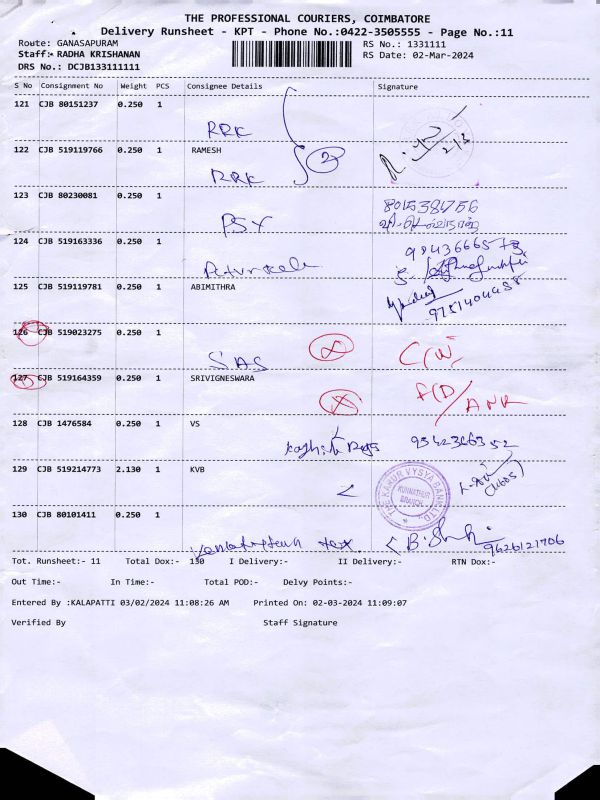 THE PROFESSIONAL COURIERS, COIMBATORE
Delivery Runsheet - KPT - Phone No.:0422-3505555 - Page No.:11
Route: GANASAPURAM
RS No.: 1331111
Staff:- RADHA KRISHANAN
RS Date: 02-Mar-2024
DRS No.: DCJB133111111
S No Consignment No Weight PCS Consignee Details Signature
121 CJB 80151237 0.250 1
RRK
122 CJB 519119766 0.250 1 RAMESH
2
RRK
123 CJB 80230081 0.250 1
PSY
124 CJB 519163336 0.250 1
125 CJB 519119781 0.250 1 ABIMITHRA
9751404485
126 CJB 519023275 0.250 1
SAS
127 CJB 519164359 0.250 1 SRIVIGNESWARA
128 CJB 1476584 0.250 1 VS
9342366352
129 CJB 519214773 2.130 1 KVB
THE KARUR VYSYA BANK LTD
KUNNATHUR
BRANCH
130 CJB 80101411 0.250 1
tex
9626121706
Tot. Runsheet:- 11 Total Dox:- 130 I Delivery:- II Delivery:- RTN Dox:-
Out Time:- In Time:- Total POD:- Delvy Points:-
Entered By :KALAPATTI 03/02/2024 11:08:26 AM Printed On: 02-03-2024 11:09:07
Verified By Staff Signature